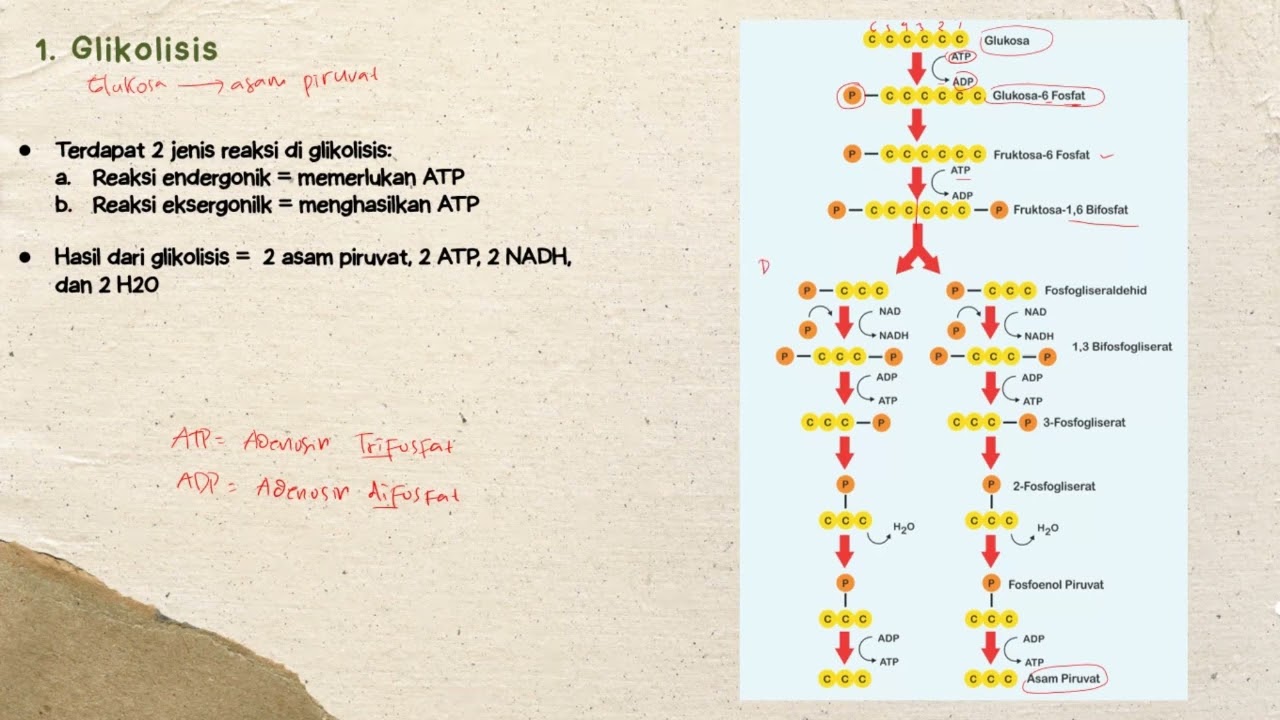 1. Glikolisis
Glukosa → asam piruvat
● Terdapat 2 jenis reaksi di glikolisis:
a. Reaksi endergonik = memerlukan ATP
b. Reaksi eksergonilk = menghasilkan ATP
● Hasil dari glikolisis = 2 asam piruvat, 2 ATP, 2 NADH,
dan 2 H2O
ATP = Adenosin Trifosfat
ADP = Adenosin difosfat
6 5 4 3 2 1
C C C C C C Glukosa
ATP
ADP
P C C C C C C Glukosa-6 Fosfat
P C C C C C C Fruktosa-6 Fosfat
ATP
ADP
P C C C C C C P Fruktosa-1,6 Bifosfat
D
P C C C P C C C Fosfogliseraldehid
NAD NAD
P P
NADH NADH
1,3 Bifosfogliserat
P C C C P P C C C P
ADP ADP
ATP ATP
C C C P C C C P 3-Fosfogliserat
P P 2-Fosfogliserat
C C C C C C
H₂O H₂O
P P Fosfoenol Piruvat
C C C C C C
ADP ADP
ATP ATP
C C C C C C Asam Piruvat